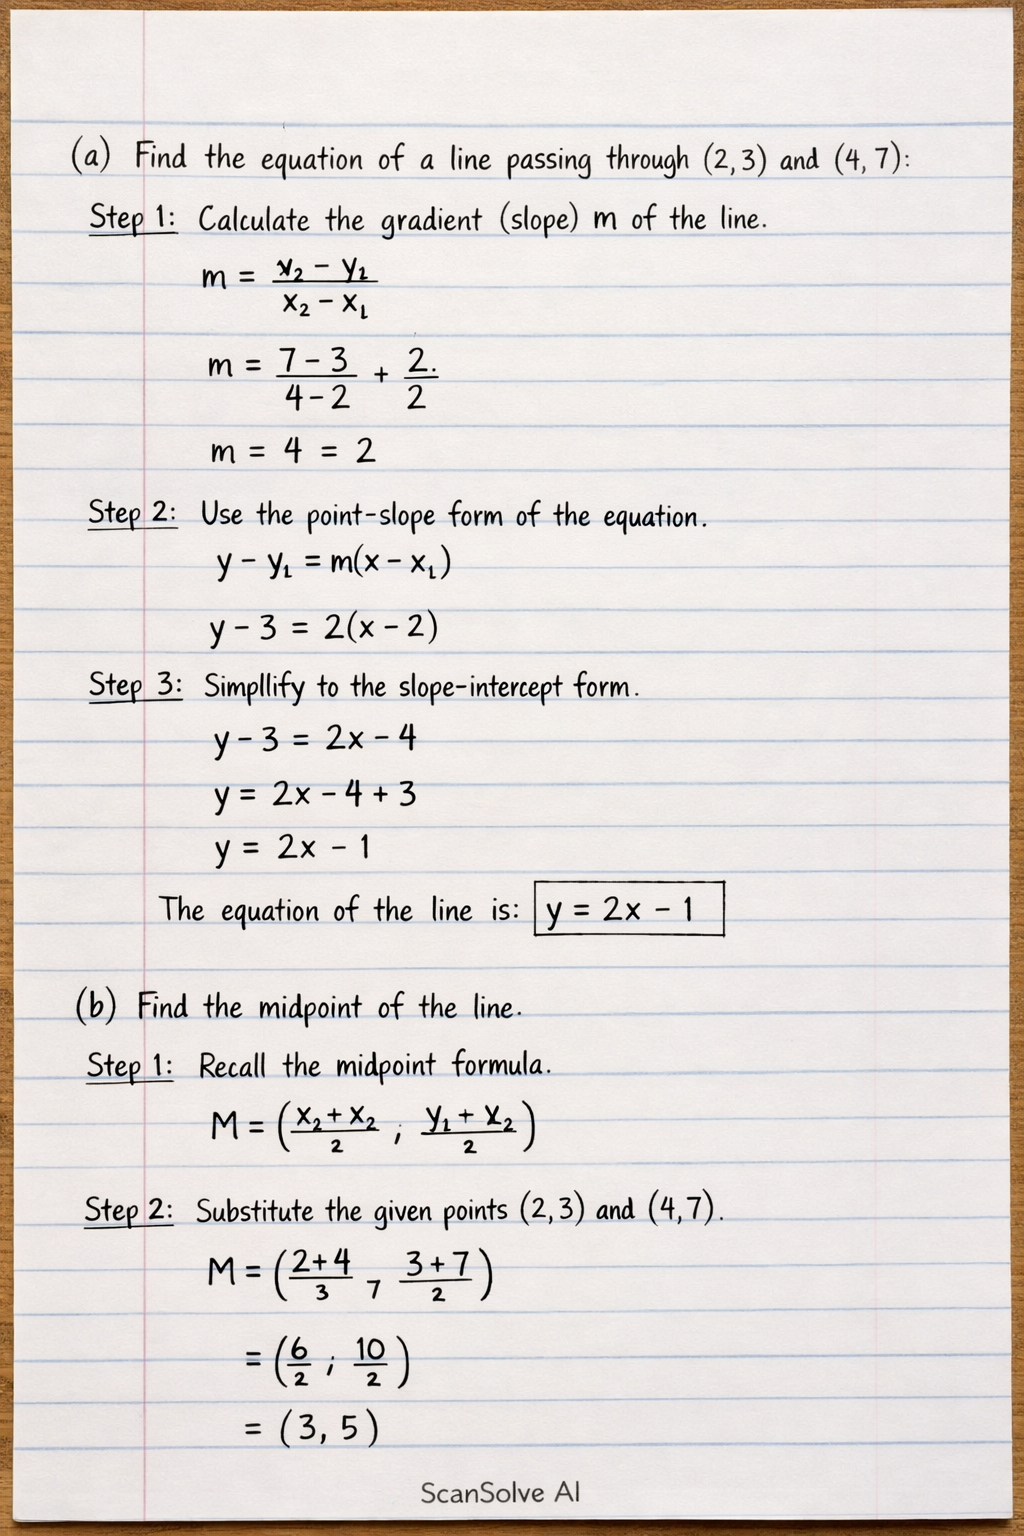 (a) Find the equation of a line passing through (2,3) and (4,7):
Step 1: Calculate the gradient (slope) m of the line.
m = (x₂ − y₂)/(x₂ − x₁)
m = (7 − 3)/(4 − 2) + 2./2
m = 4 = 2
Step 2: Use the point-slope form of the equation.
y − y₁ = m(x − x₁)
y − 3 = 2(x − 2)
Step 3: Simpllify to the slope-intercept form.
y − 3 = 2x − 4
y = 2x − 4 + 3
y = 2x − 1
The equation of the line is: y = 2x − 1
(b) Find the midpoint of the line.
Step 1: Recall the midpoint formula.
M = ((x₂ + x₂)/2 ; (y₁ + x₂)/2)
Step 2: Substitute the given points (2,3) and (4,7).
M = ((2+4)/3 7 (3+7)/2)
= (6/2 ; 10/2)
= (3, 5)
ScanSolve AI